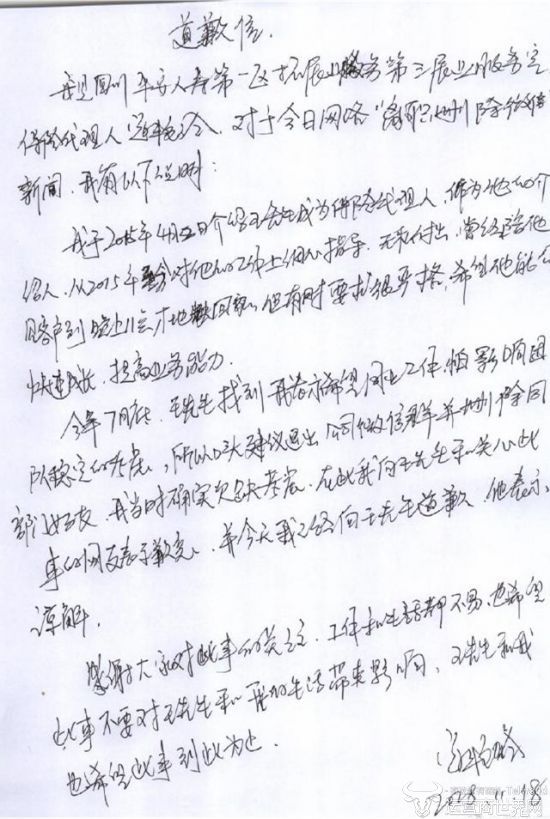 道歉信.
我是四川平安人寿第一区拓展业务第三展业服务室
保险代理人 对于今日网络“离职删除微信”
新闻, 我有以下说明:
我于2015年4月 日介绍王先生成为保险代理人, 作为他的介
绍人, 从2015年 对他的工作上细心指导、无私付出, 曾经陪他
见客户到晚上11点才地铁回家, 但有时要求很严格, 希望他能够
快速成长, 提高业务能力.
今年7月底, 王先生找到我表示希望 工作, 怕影响团
队稳定的考虑, 所以口头建议退出公司微信群并删除同
部门好友, 我当时确实欠缺考虑. 在此我向王先生和关心此
事的网友表示歉意, 并今天我已经向王先生道歉, 他表示
谅解.
感谢大家对此事的关注, 工作和生活都不易, 也希望
此事不要对王先生和我的生活带来影响, 王先生和我
也希望此事到此为止.
2018.11.18